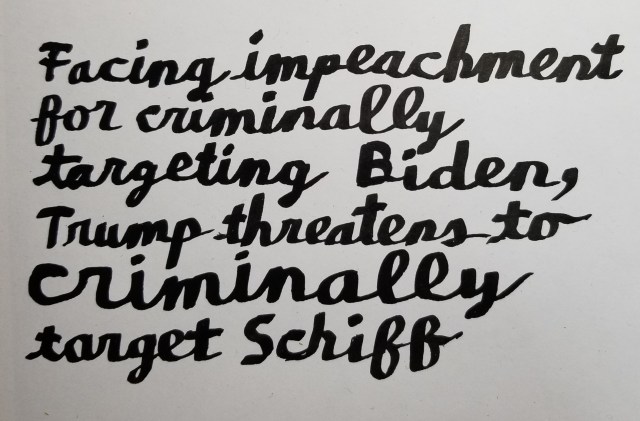 Facing impeachment
for criminally
targeting Biden,
Trump threatens to
criminally
target Schiff